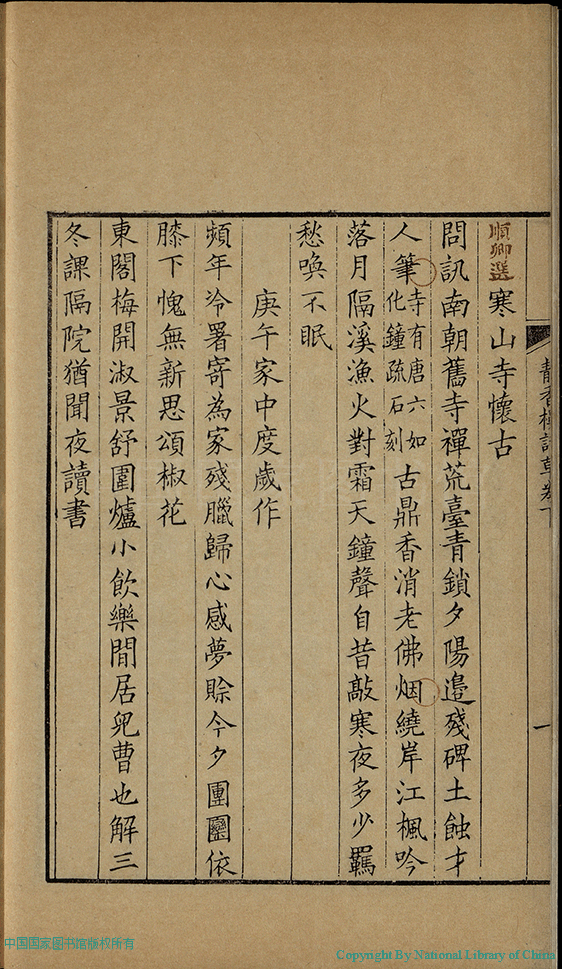 順卿選
寒山寺懷古
問訊南朝舊寺禪荒臺青鎖夕陽邉殘碑土蝕才
人筆寺有唐六如化鐘疏石刻古鼎香消老佛烟繞岸江楓吟
落月隔溪漁火對霜天鐘聲自昔敲寒夜多少羈
愁喚不眠
庚午家中度歲作
頻年冷署寄為家殘臘歸心感夢賒今夕團圞依
膝下愧無新思頌椒花
東閣梅開淑景舒圍爐小飲樂閒居兒曹也解三
冬課隔院猶聞夜讀書
一
中国国家图书馆版权所有
Copyright By National Library of China